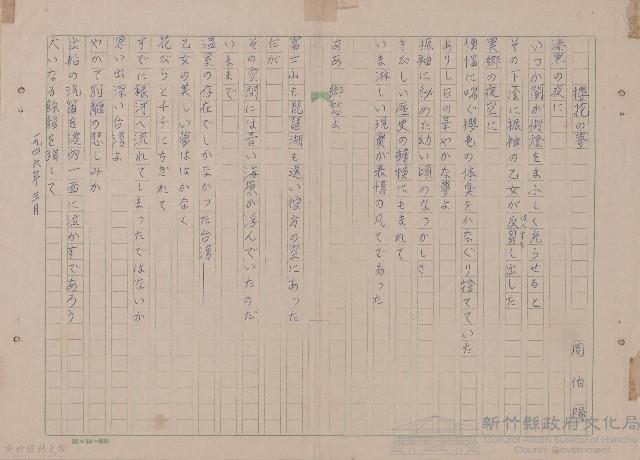 櫻花の夢
周伯陽
漆黒の夜に
いつか闇が街燈をまぶしく光らせると
その下蔭に振袖の乙女が反芻し出した
はんすう
異郷の夜空に
懊悩に喘ぐ櫻色の体臭をかなぐり捨てていた
ありし日の華やかな夢よ
振袖に秘めた幼い頃のなつかしさ
きびしい歴史の轉換にもまれて
いま淋しい現實が表情の凡てであった
ああ 郷愁よ
富士山も琵琶湖も遠い彼方の空にあった
だが
その空間には青い海原が浮んでいたのだ
いままで
温室の存在でしかなかった台湾
乙女の美しい夢ははかなく
花びらと千千にちぎれて
すでに銀河へ流れてしまったではないか
思い出深い台湾よ
やがて別離の悲しみが
出船の汽笛を港内一面に泣かすであろう
大いなる餘韻を残して
一九四六年 三月
25×24=600
新竹縣政府文化局
Cultural Affairs Bureau of Hsinchu
County Government